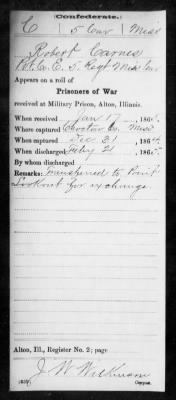 Confederate.
C 5 Cav Miss
Robert Carnes
Pvt. Co. E. 5. Regt Miss Cav
Appears on a roll of
Prisoners of War
received at Military Prison, Alton, Illinois.
When received Jan 17, 1865.
Where captured Choctaw Co. Miss
When captured Dec 31, 1864.
When discharged Feby 21, 1865.
By whom discharged
Remarks: Transferred to Point
Lookout for exchange.
Alton, Ill., Register No. 2; page
J. W. Wilkinson
Copyist.